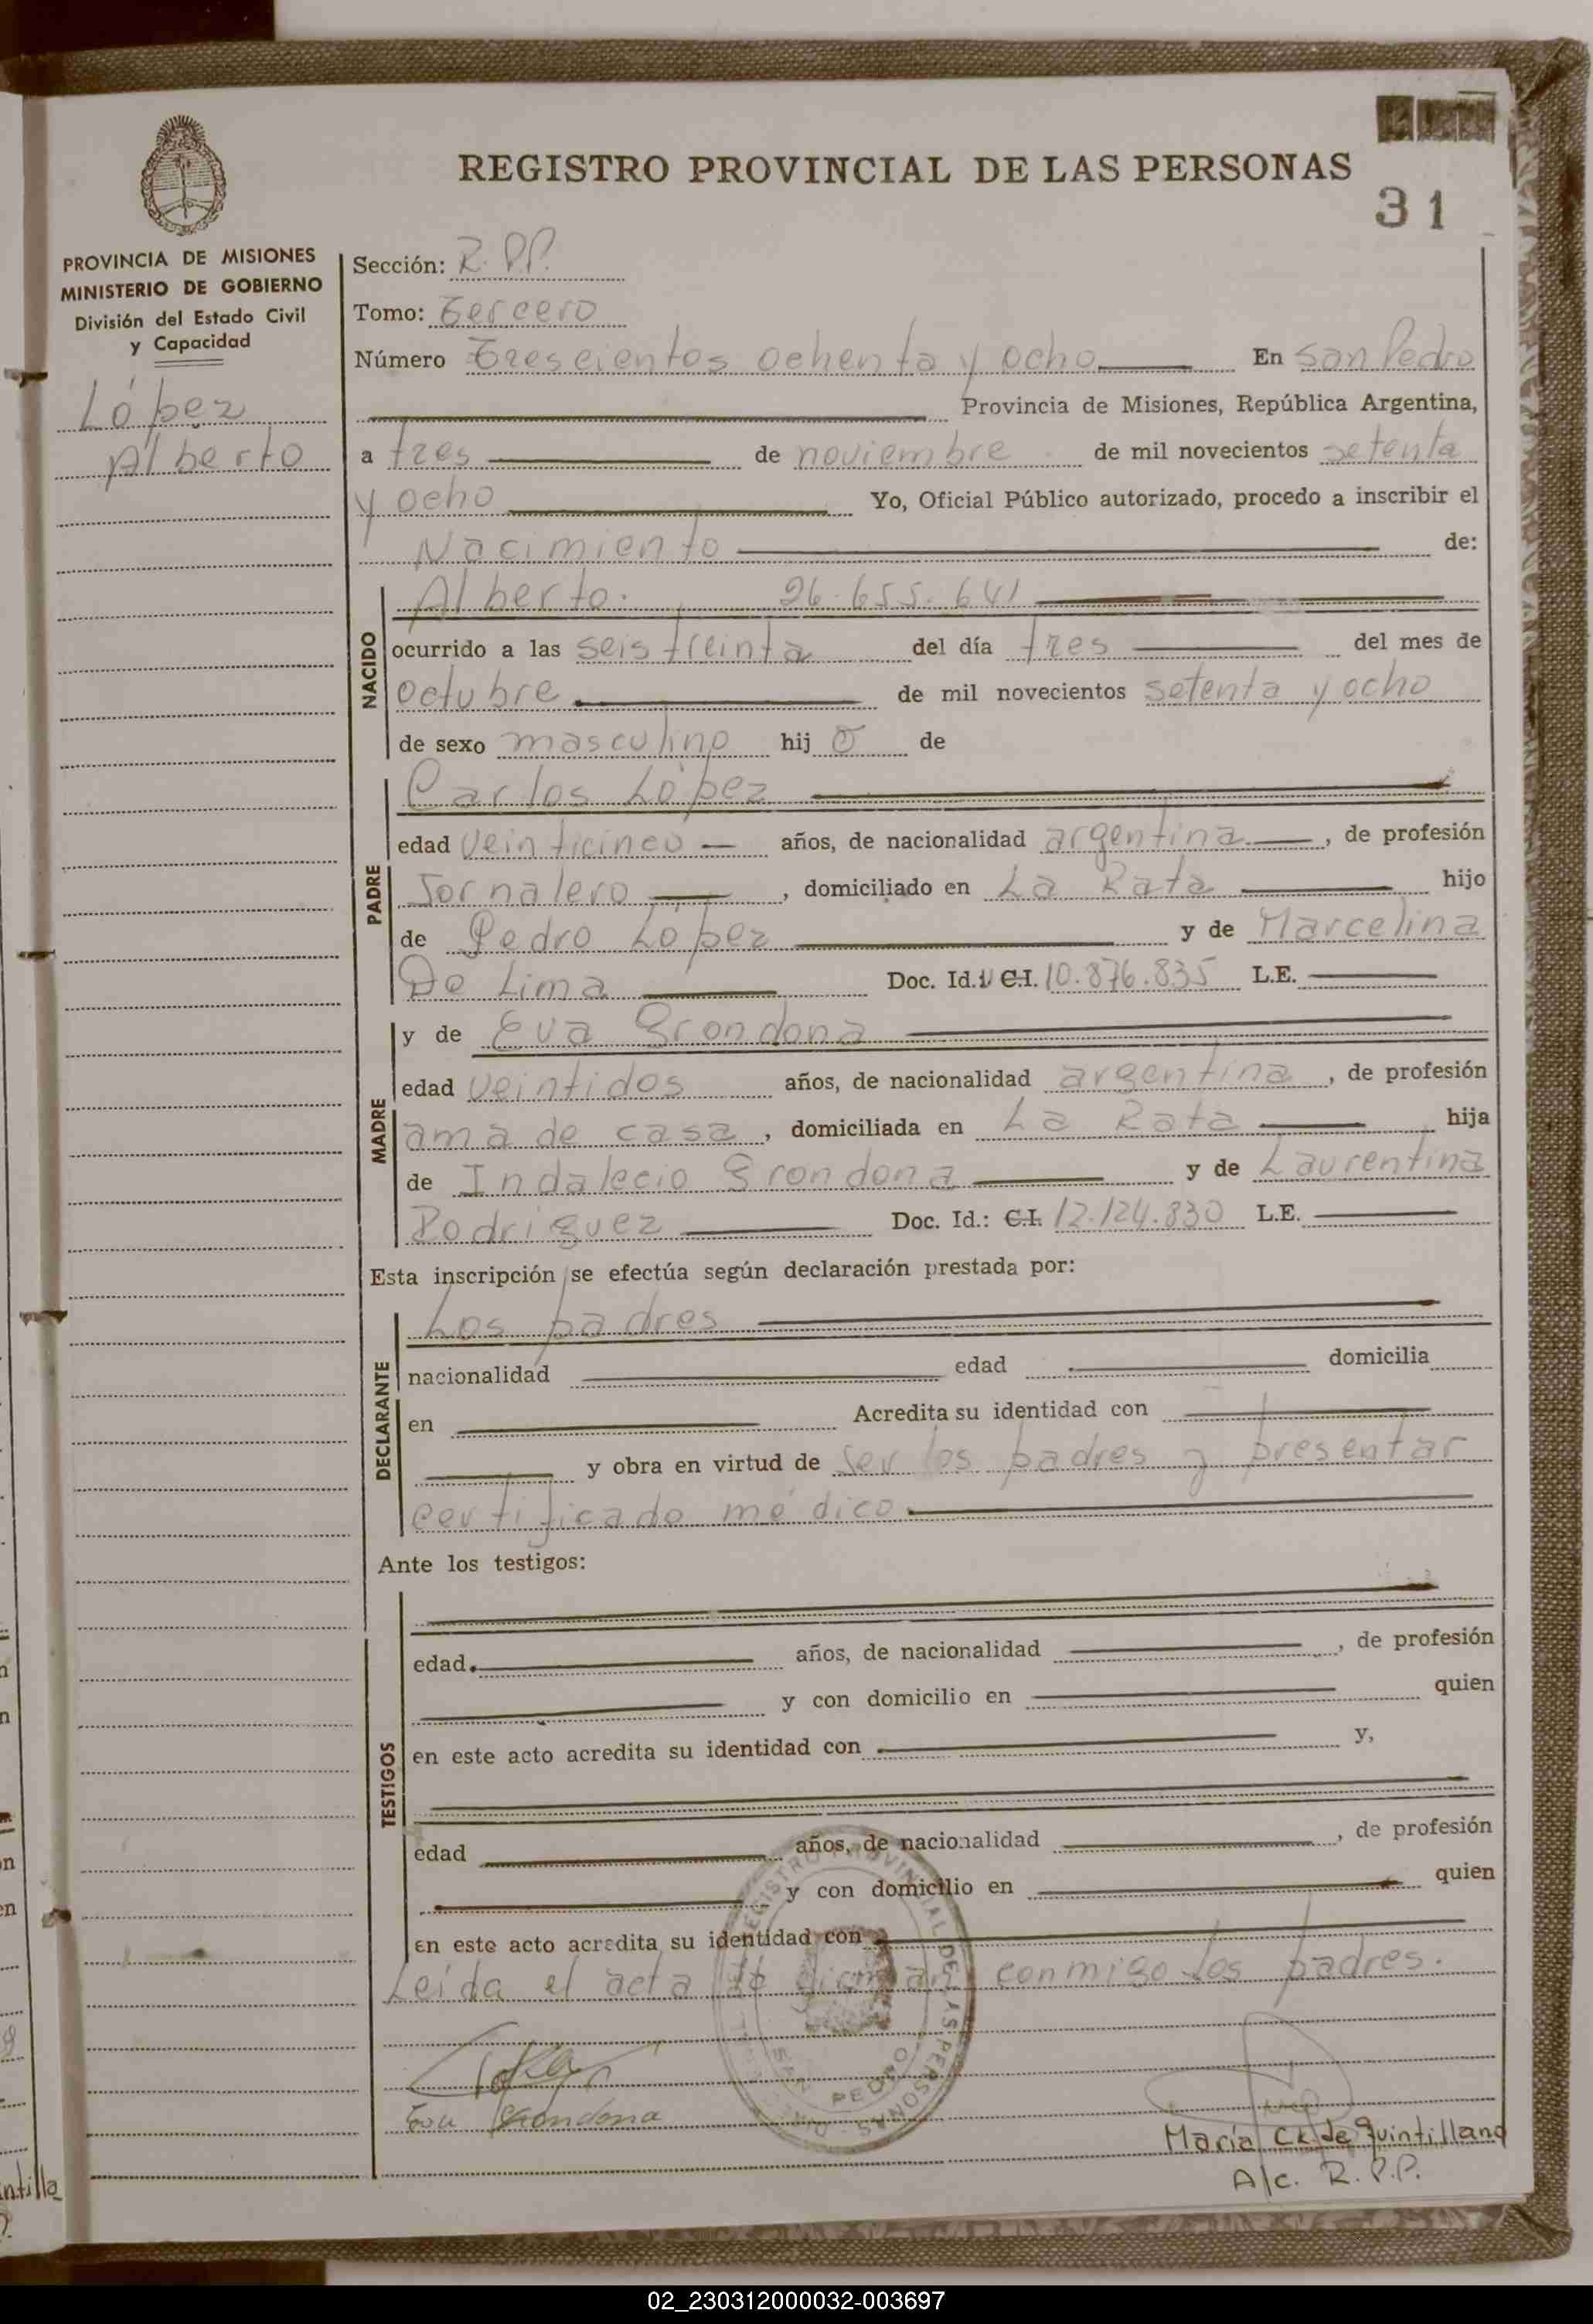 REGISTRO PROVINCIAL DE LAS PERSONAS
31
PROVINCIA DE MISIONES
MINISTERIO DE GOBIERNO
División del Estado Civil
y Capacidad
López
Alberto
Sección: R.P.P.
Tomo: Tercero
Número Trescientos ochenta y ocho En San Pedro
Provincia de Misiones, República Argentina,
a tres de noviembre de mil novecientos setenta
y ocho Yo, Oficial Público autorizado, procedo a inscribir el
Nacimiento de:
NACIDO
Alberto. 26.655.641
ocurrido a las seis treinta del día tres del mes de
octubre de mil novecientos setenta y ocho
de sexo masculino hij o de
PADRE
Carlos López
edad veinticinco años, de nacionalidad argentina, de profesión
Jornalero, domiciliado en La Rata hijo
de Pedro López y de Marcelina
De Lima Doc. Id.: C.I. 10.876.835 L.E.
MADRE
y de Eva Grondona
edad veintidos años, de nacionalidad argentina, de profesión
ama de casa, domiciliada en La Rata hija
de Indalecio Grondona y de Laurentina
Rodriguez Doc. Id.: C.I. 12.124.830 L.E.
Esta inscripción se efectúa según declaración prestada por:
DECLARANTE
Los padres
nacionalidad edad domicilia
en Acredita su identidad con
y obra en virtud de ser los padres y presentar
certificado médico
Ante los testigos:
TESTIGOS
edad años, de nacionalidad , de profesión
y con domicilio en quien
en este acto acredita su identidad con y,
edad años, de nacionalidad , de profesión
y con domicilio en quien
en este acto acredita su identidad con
Leída el acta la firman conmigo los padres.
REGISTRO PROVINCIAL DE LAS PERSONAS
SAN PEDRO
Eva Grondona
María C. de Quintillana
A/c. R.P.P.
02_230312000032-003697